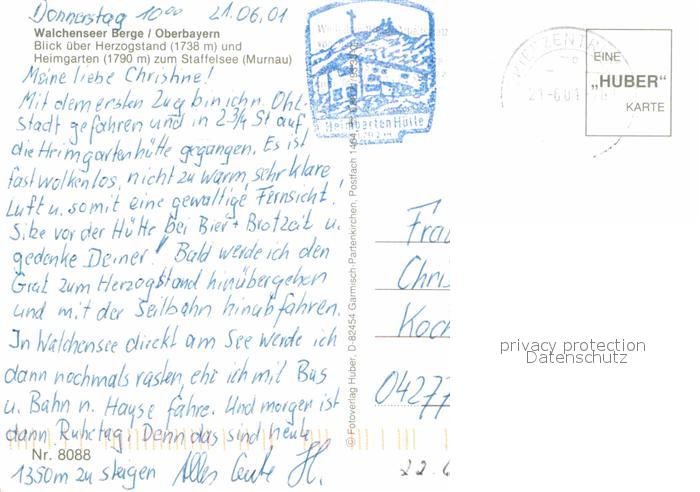 Donnerstag 10⁰⁰ 21.06.01
Walchenseer Berge / Oberbayern
Blick über Herzogstand (1738 m) und
Heimgarten (1790 m) zum Staffelsee (Murnau)
Meine liebe Christine!
Mit dem ersten Zug bin ich n. Ohl-
stadt gefahren und in 2 3/4 St auf
die Heimgartenhütte gegangen. Es ist
fast wolkenlos, nicht zu warm, sehr klare
Luft u. somit eine gewaltige Fernsicht!
Sitze vor der Hütte bei Bier + Brotzeit u.
gedenke Deiner! Bald werde ich den
Grat zum Herzogstand hinübergehen
und mit der Seilbahn hinabfahren.
In Walchensee direkt am See werde ich
dann nochmals rasten, ehe ich mit Bus
u. Bahn n. Hause fahre. Und morgen ist
dann Ruhetag. Denn das sind heute
Nr. 8088
1350m zu steigen Alles Gute H.
Heimgarten Hütte
© Fotoverlag Huber, D-82454 Garmisch-Partenkirchen, Postfach 1464
EINE
„HUBER"
KARTE
21-6.01
Frau
Chris
Koch
04277
22.6
privacy protection
Datenschutz